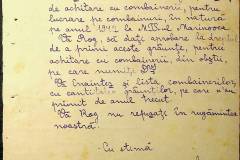 de achitare cu combainerii, pentru
lucrare pe combainuri, în natură
pe anul 194 la MTS.ul Marinooca
Vă Rog, să dați aprobare la
de a primi aceste grăunțe, pentru
achitare cu combainerii, din obști,
pe care numiți Dvs
Vă înaintez și lista combainerilor,
cu cantitatea grăunților, pe care n'au
primit de anul trecut.
Vă Rog nu refuzați în rugămintea
noastră.
Cu stimă